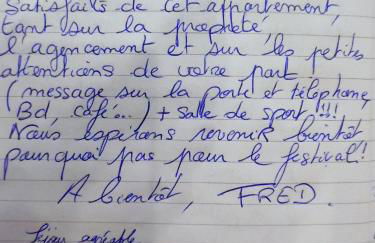 Satisfaits de cet appartement,
tant sur la propreté,
l'agencement et sur les petites
attentions de votre part
(message sur la porte et téléphone,
Bd, café...) + salle de sport !!!!
Nous espérons revenir bientôt
pourquoi pas pour le festival!
A bientôt, FRED.
agréable